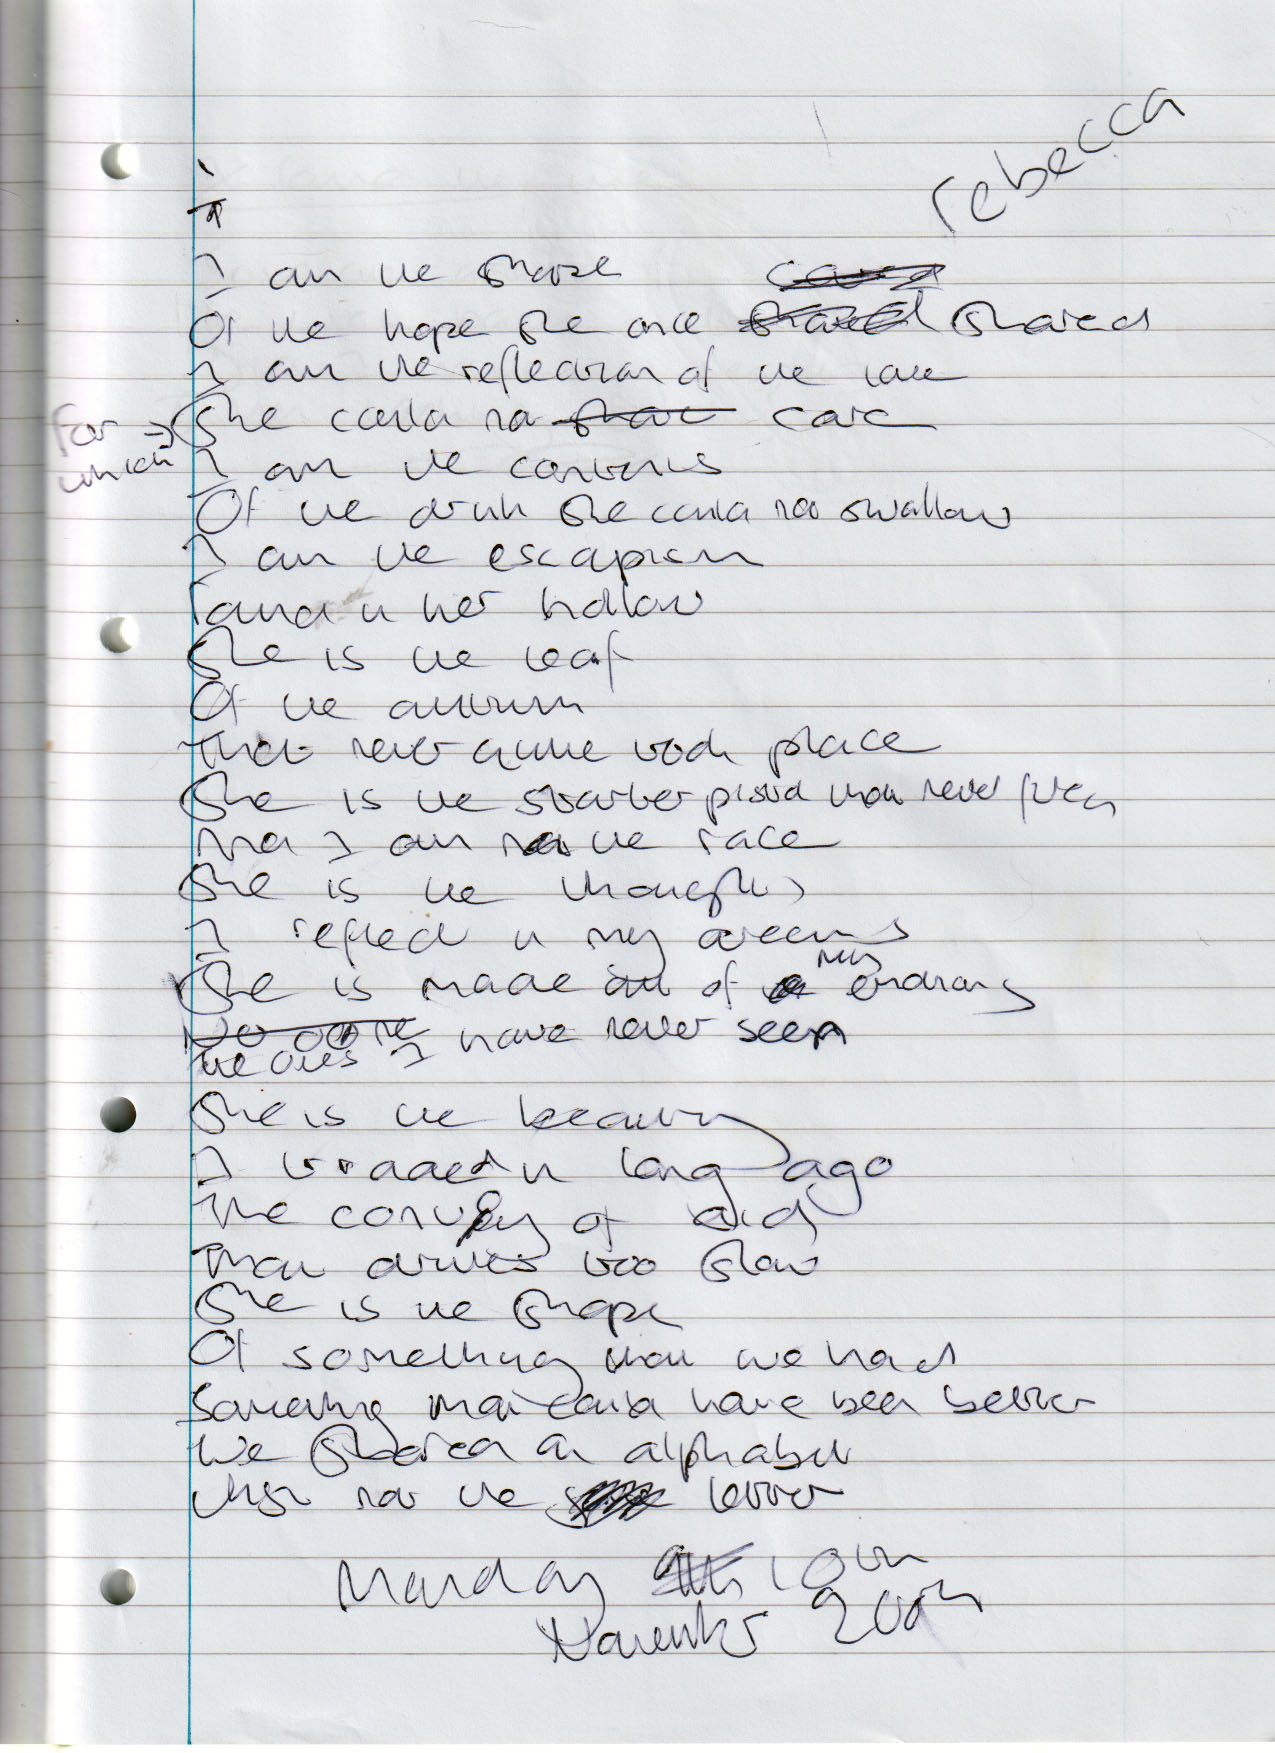 rebecca
I am the shape
Of the hope she once shared
I am the reflection of the love
For which → She could not care
I am the contents
Of the drink she could not swallow
I am the escapism
Found in her hollow
She is the leaf
Of the autumn
That never quite took place
She is the starter pistol that never fires
And I am not the race
She is the thoughts
I reflect in my dreams
She is made out of my endings
The ones I have never seen
She is the beauty
I traded in long ago
The convoy of aid
That arrives too slow
She is the shape
Of something that we had
Something that could have been better
We shared an alphabet
Just not the letter
Monday 10th
November